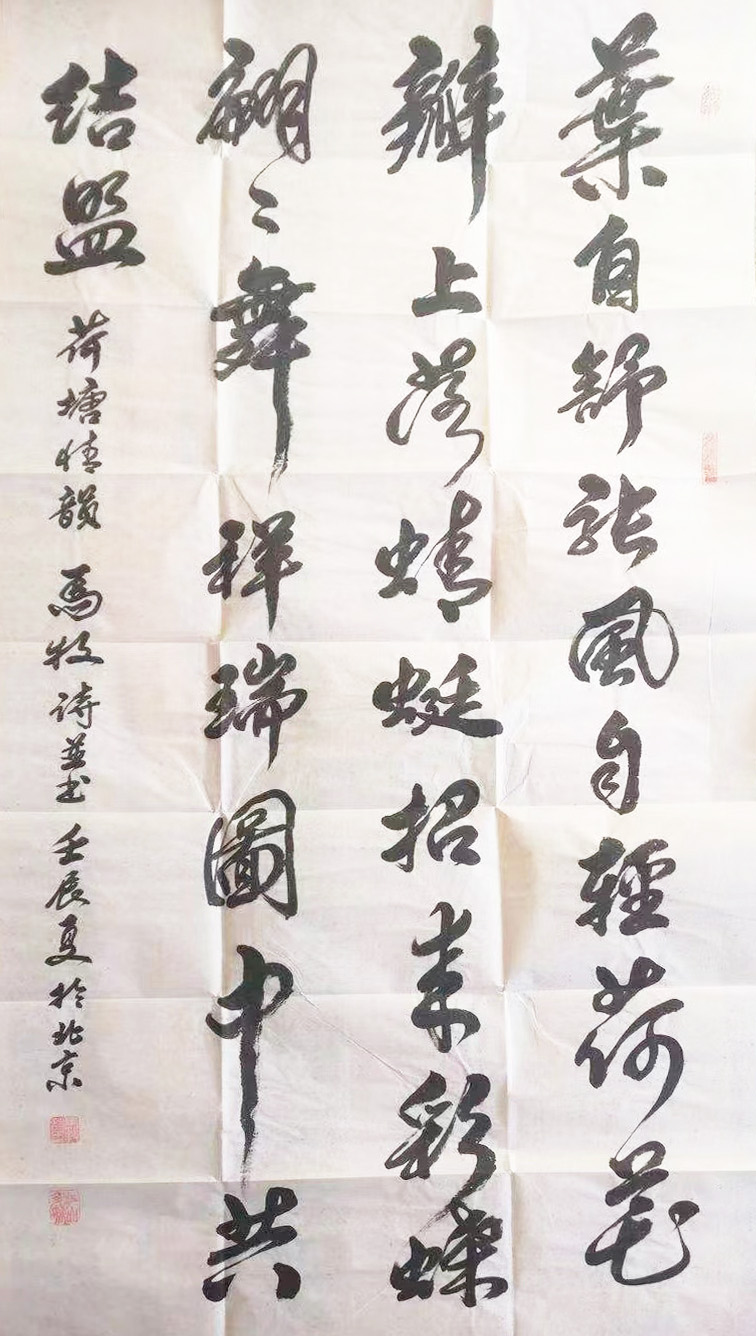 葉自舒張風自輕荷花
瓣上落蜻蜓招来彩蝶
翩〻舞祥瑞圖中共
结盟
荷塘情韻 馬牧诗並书 壬辰夏於北京